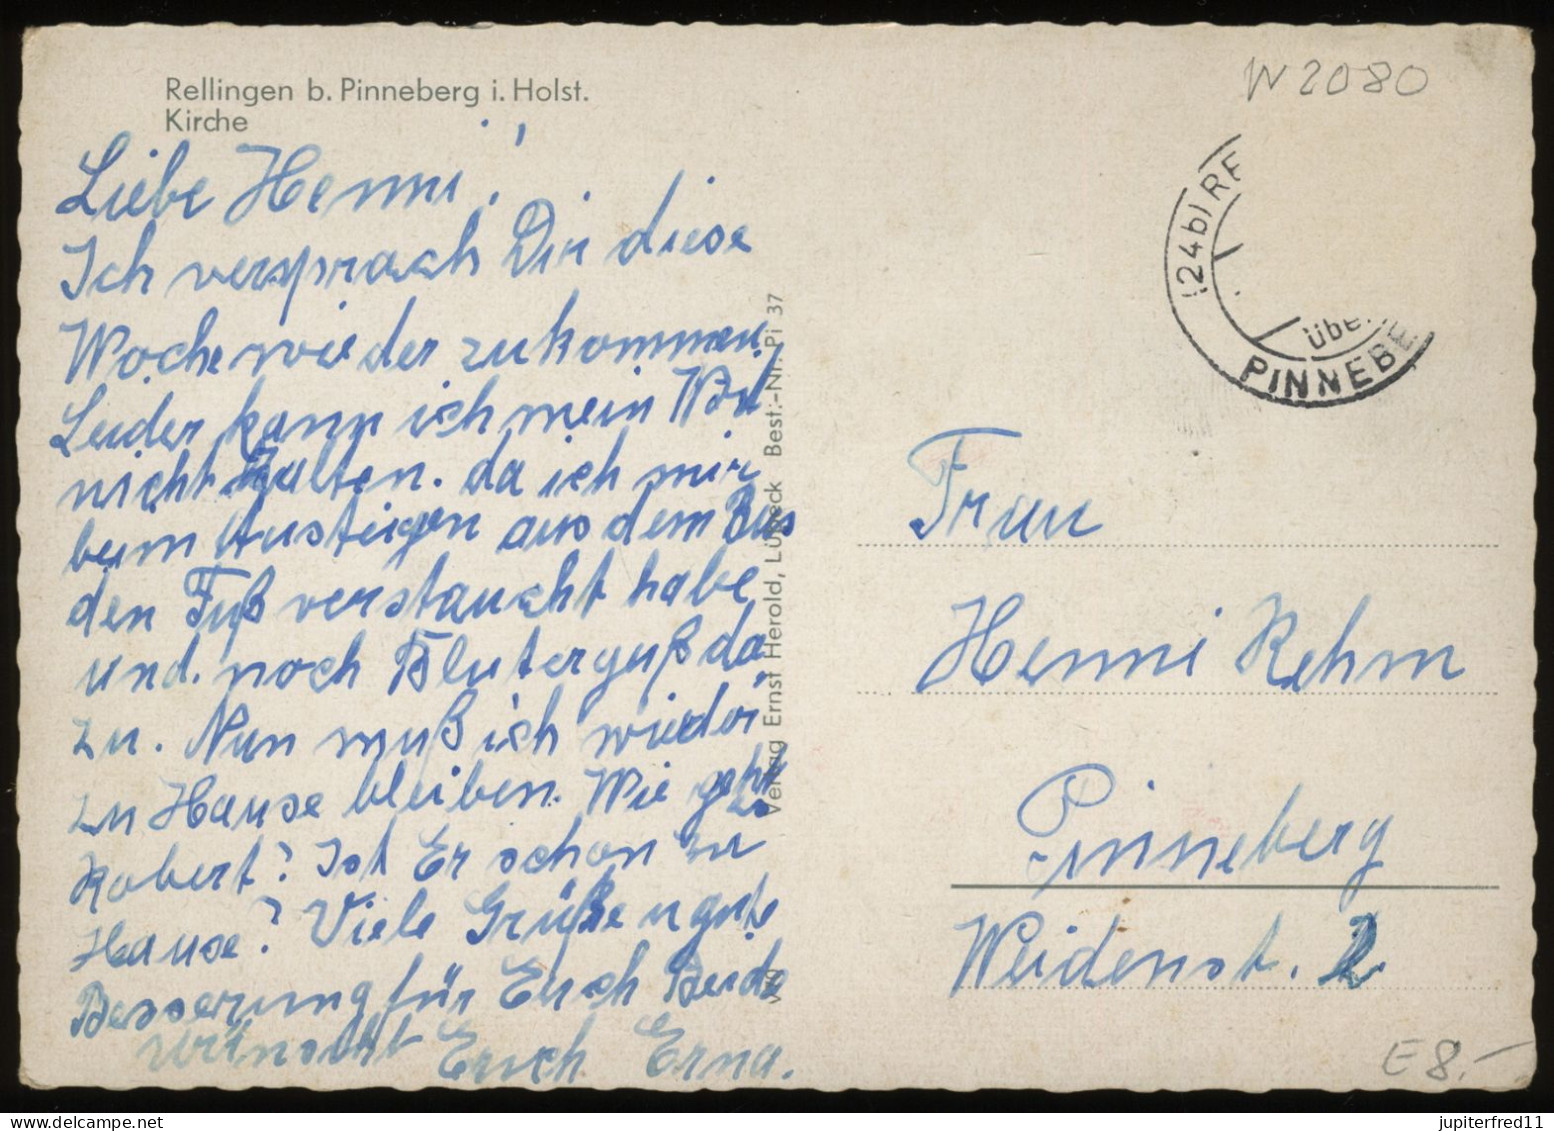 Rellingen b. Pinneberg i. Holst.
Kirche
Liebe Henni!
Ich versprach Dir diese
Woche wieder zukommen.
Leider kann ich mein Wort
nicht halten. da ich mir
beim Austeigen aus dem Bus
den Fuß verstaucht habe
und. noch Bluterguß da
zu. Nun muß ich wieder
zu Hause bleiben. Wie geht
Robert? Ist Er schon zu
Hause? Viele Grüße u gute
Besserung für Euch Beide
wünscht Erich Erna.
Verlag Ernst Herold, Lübeck Best.-Nr. Pi 37
W2080
(24b) RE
über
PINNEBE
Frau
Henni Rehm
Pinneberg
Weidenst. 2
E 8.-
jupiterfred11